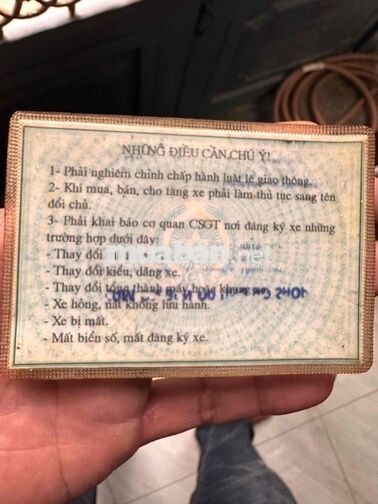 NHỮNG ĐIỀU CẦN CHÚ Ý!
1- Phải nghiêm chỉnh chấp hành luật lệ giao thông.
2- Khi mua, bán, cho tặng xe phải làm thủ tục sang tên
đổi chủ.
3- Phải khai báo cơ quan CSGT nơi đăng ký xe những
trường hợp dưới đây:
- Thay đổi
- Thay đổi kiểu, dáng xe.
- Thay đổi tổng thành máy hoặc khung
- Xe hỏng, nát không lưu hành.
- Xe bị mất.
- Mất biển số, mất đăng ký xe.
muaban.net